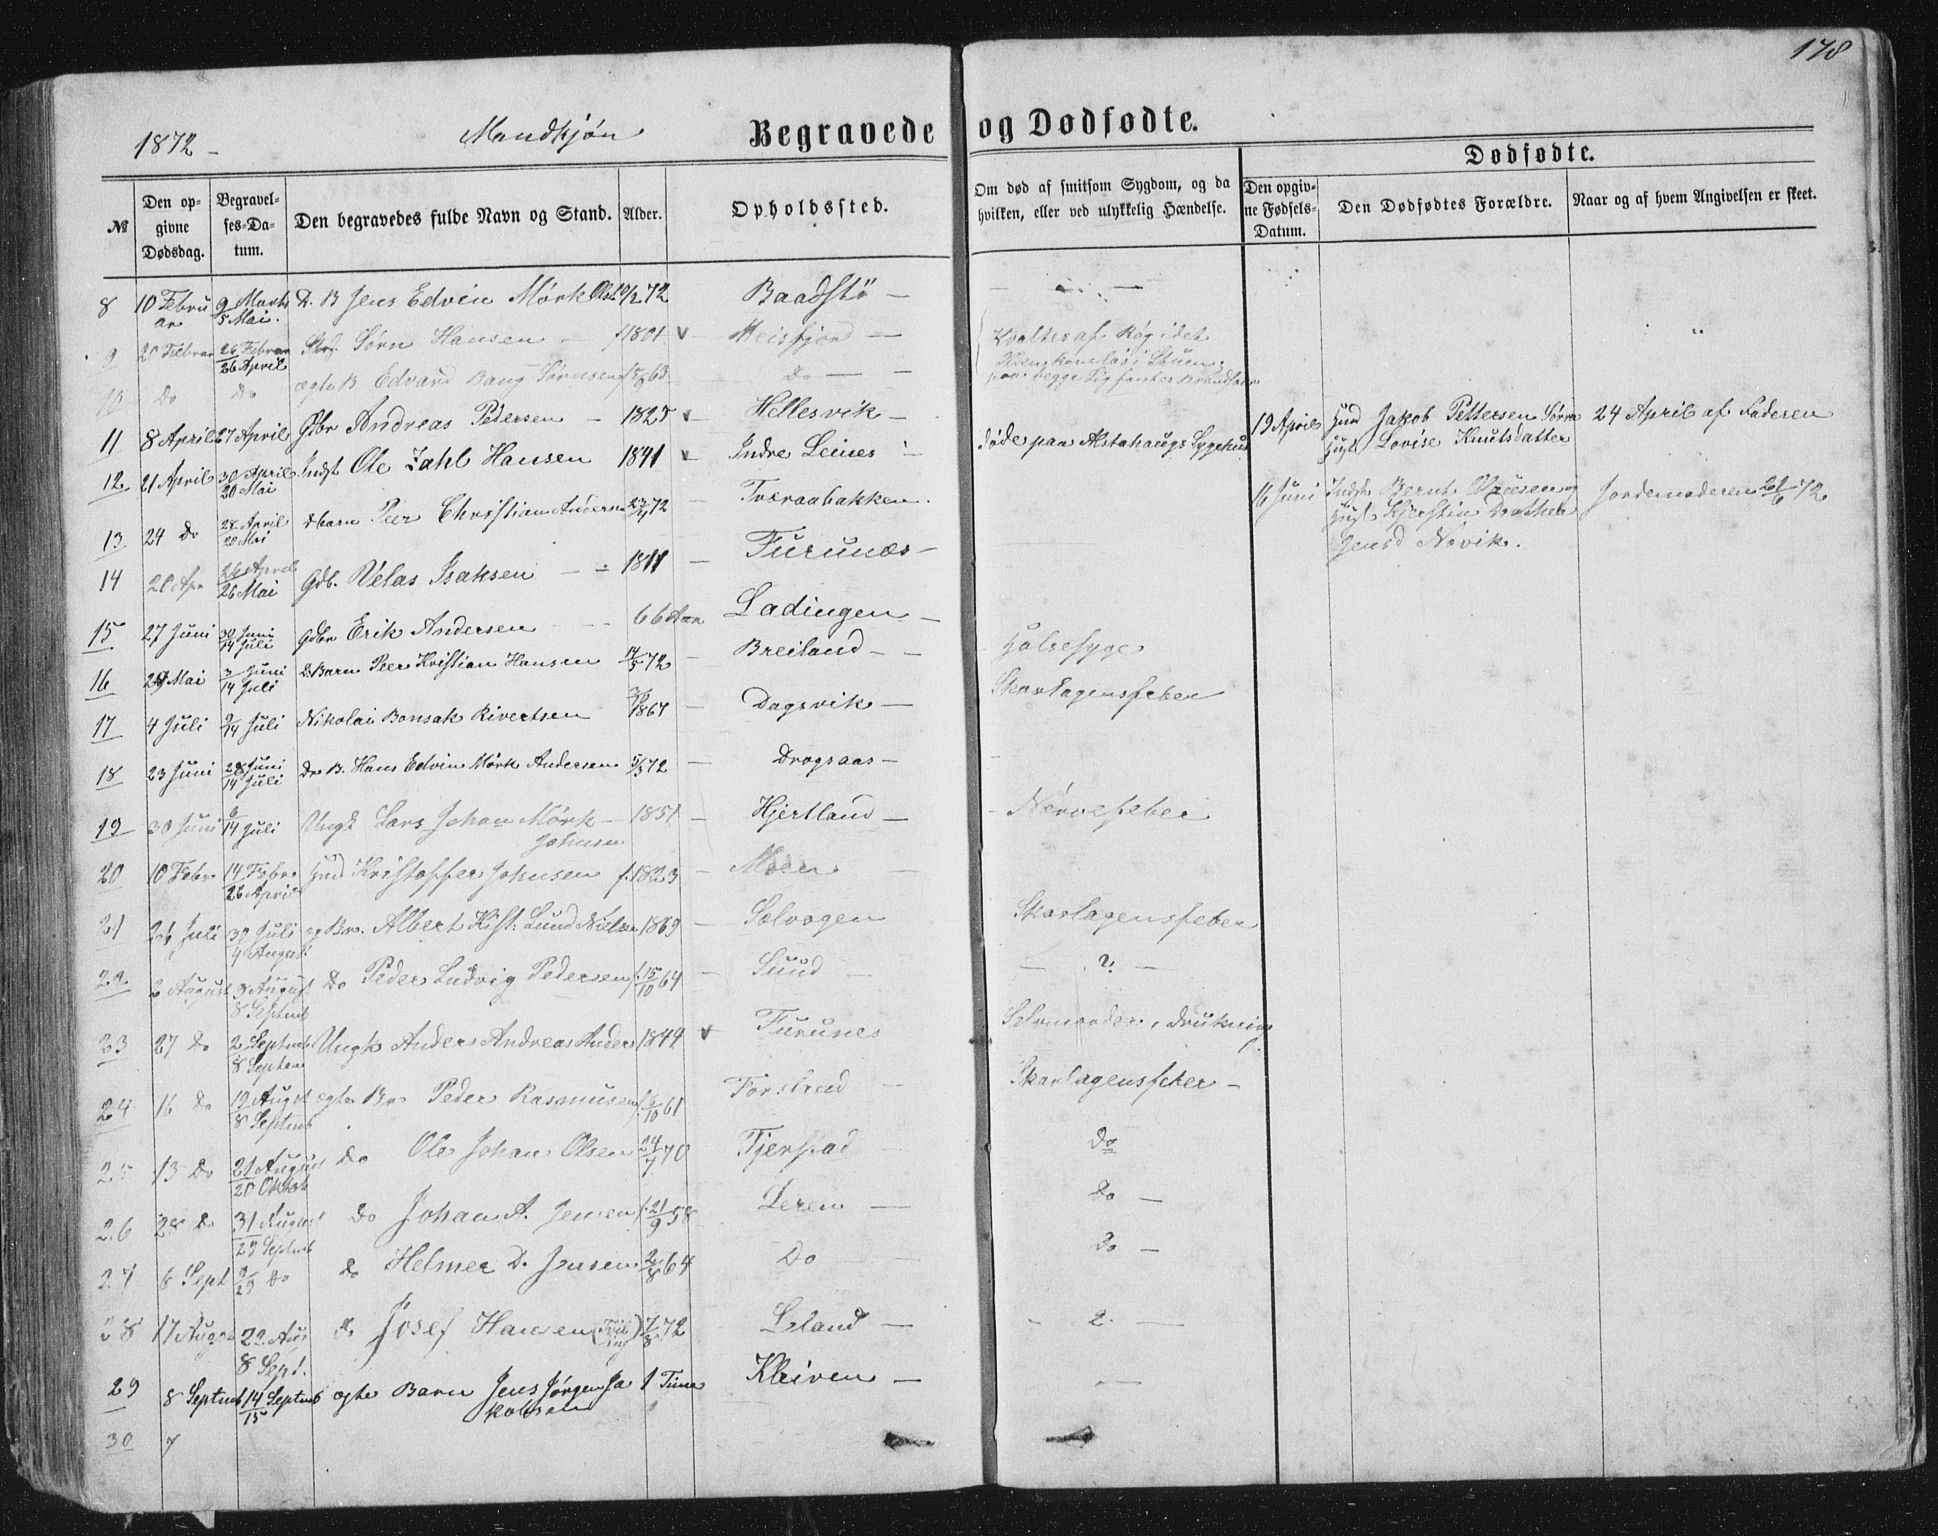 178
1872 –
Mandkjøn
Begravede og Dødfødte.
№
Den opgivne Dødsdag.
Begravelses-Datum.
Den begravedes fulde Navn og Stand.
Alder.
Opholdssted.
Om død af smitsom Sygdom, og da hvilken, eller ved ulykkelig Hændelse.
Dødfødte.
Den opgivne Fødsels-Datum.
Den Dødfødtes Forældre.
Naar og af hvem Angivelsen er skeet.
8 10 Februar 9 Marts 5 Mai. D. B Jens Edvin Mørk 10/2 72 Baadstö –
9 20 Februar 26 Februar 26 April Sørn Hansen – 1801 v Meisfjord –
10 Do Do ægte B Edvard Bang Sörensen 63 Do –
11 8 April 27 April Gbr Andreas Pedersen – 1825 v Hellesvik –
12 21 April 30 April 20 Mai Indst Ole Zahl Hansen 1841 v Indre Leines døde paa Alstahaugs Sygehus
13 24 Do 28 April 20 Mai d barn Peer Christian Andersen 23/4 72 – Tværaabakken.
14 20 Apr 26 April 26 Mai Gdb. Velas Isaksen – 1811 – Furunæs –
15 27 Juni 30 Juni 14 Juli Gdbr Erik Andersen – 66 Aar Ladingen –
16 29 Mai 3 Juni 14 Juli D. Barn Peer Kristian Hansen 14/5 72 – Breiland – – Halsesyge
17 4 Juli 9/14 Juli Nikolai Bonsak Sivertsen 1867 – Dagsvik – Skarlagensfeber
18 23 Juni 28 Juni 14 Juli D. B. Hans Edvin Mørk Andersen 5/3 72 – Dragsaas –
19 30 Juni 6/14 Juli Ungk Lars Johan Mørk Johnsen 1851 – Hjertland – Nervefeber
20 10 Febr 14 Febr 26 April Kristoffer Johnsen f. 1823 – Moen
21 26 Juli 30 Juli 4 August Albert Krist: Lund Nielsen 1869 – Solvogen Skarlagensfeber
22 2 August 8 August 8 Septemb Do Peder Ludvig Pedersen f. 15/10 64 – Sund – – ? –
23 27 Do 2 Septemb 8 Septem Ungk Anders Andreas Anders 1844 v Furunes Selvmorder, drukning
24 16 Do 19 August 8 Septemb ægte Br Peder Rasmusen 61 Forsland Skarlagensfeber –
25 13 Do 21 August 20 Oktob Do Ole Johan Olsen 24/7 70 Tjerstad Do
26 28 Do 31 August 29 Septemb Do Johan A. Jensen f. 21/9 58 Leren – Do –
27 6 Sept 9/29 Do do Helmer D. Jensen 2/8 64 Do Do –
28 17 August 22 Aug 8 Sept. do Josef Hansen 7/8 72 Leland – –
29 8 Septemb 14/15 Septemb ægte Barn Jens Jørgen Jakobsen 1 Time Kleiven – –
30 7
19 April Jakob Pettersen Hust Lovise Knutsdatter 24 April af Faderen
16 Juni Indst Bernt Hust Kjerstin Jensd Növik. Jordemoderen 21/6 72